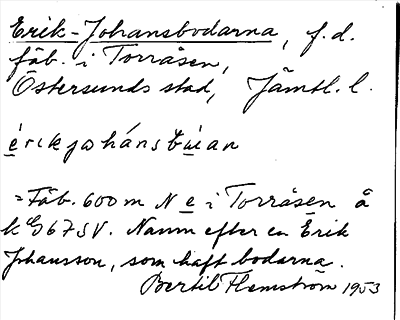 Erik-Johansbodarna, f.d.
fäb. i Torråsen,
Östersunds stad, Jämtl. l.
érikjohánsbúan
= Fäb. 600 m N e i Torråsen å
k G67SV. Namn efter en Erik
Johansson, som haft bodarna.
Bertil Flemström 1953